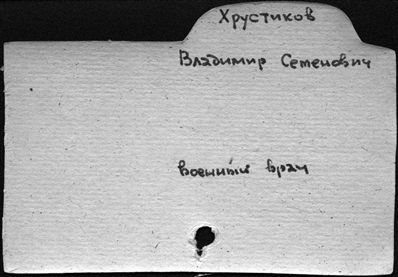 Хрустиков
Владимир Семенович
военный врач